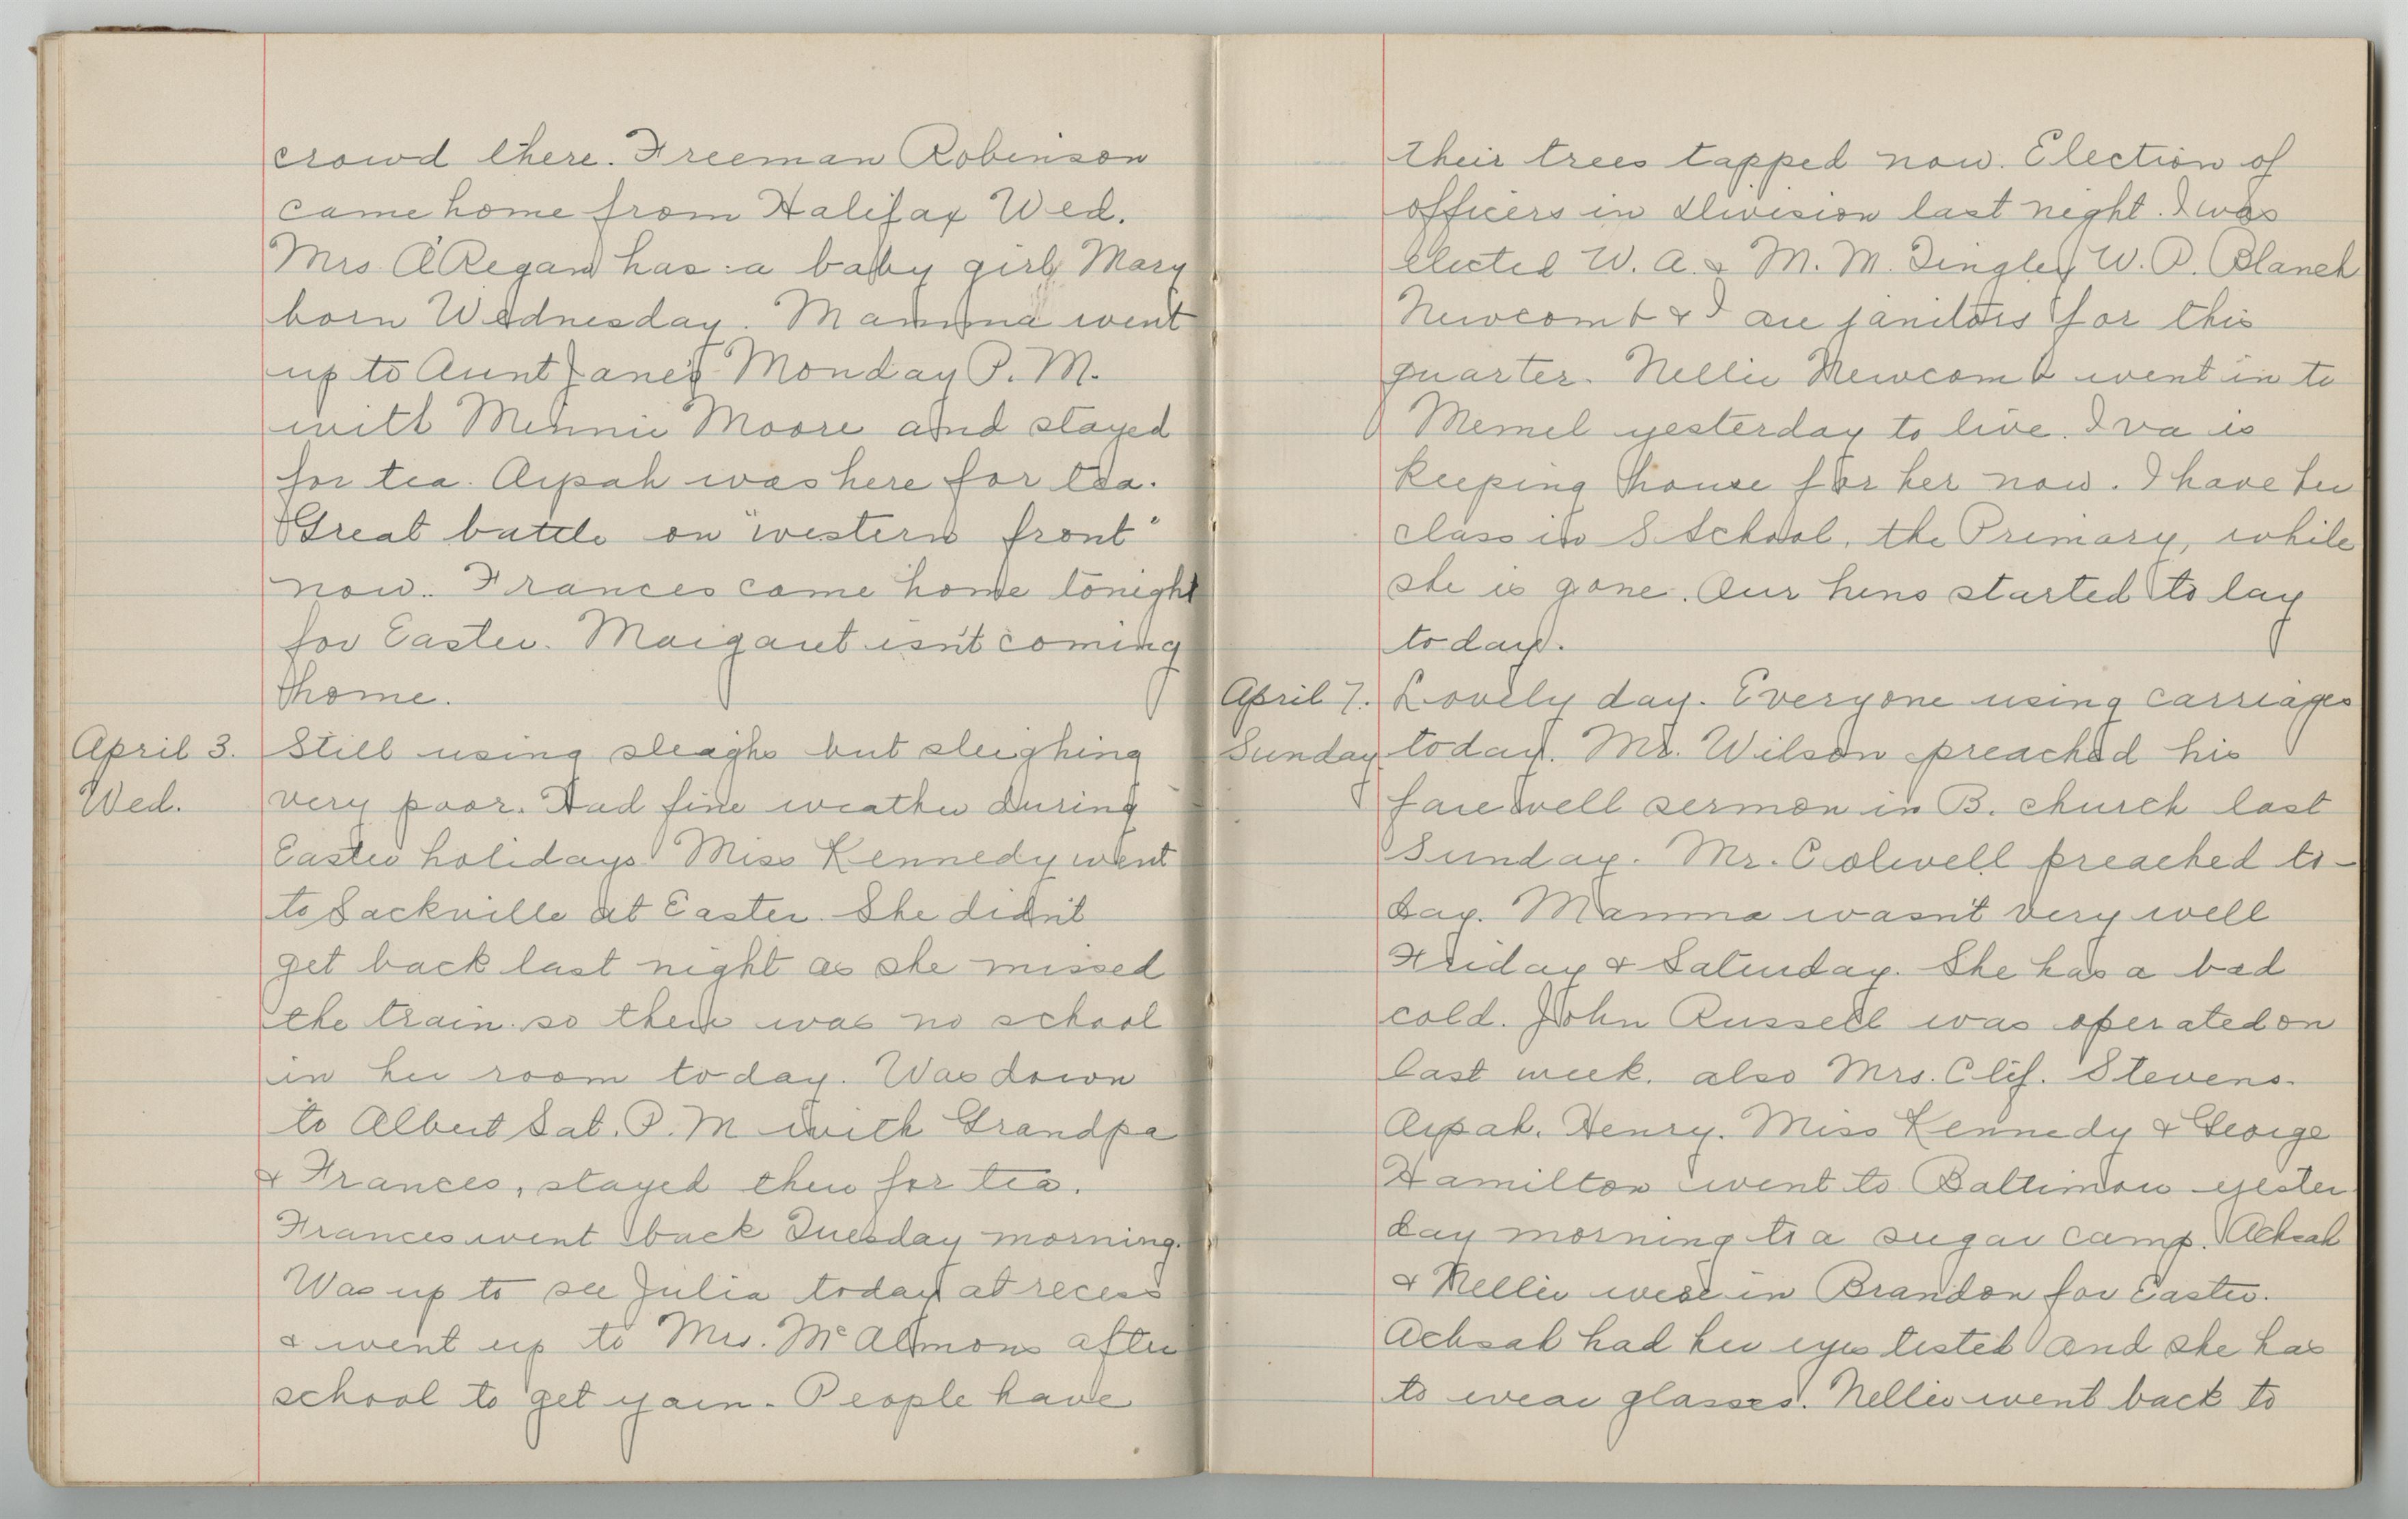 crowd there. Freeman Robinson
came home from Halifax Wed.
Mrs O'Regan has a baby girl, Mary
born Wednesday. Mamma went
up to Aunt Jane's Monday P.M.
with Minnie Moore and stayed
for tea. Arpah was here for tea.
Great battle on "western front"
now. Frances came home tonight
for Easter. Margaret isn't coming
home.
April 3. Still using sleighs but sleighing
Wed. very poor. Had fine weather during
Easter holidays. Miss Kennedy went
to Sackville at Easter. She didn't
get back last night as she missed
the train so there was no school
in her room today. Was down
to Albert Sat. P.M with Grandpa
& Frances, stayed there for tea.
Frances went back Tuesday morning.
Was up to see Julia today at recess
& went up to Mrs. McAlmons after
school to get yarn. People have
their trees tapped now. Election of
officers in Division last night. I was
elected W. A. & M. M. Tingley W. P. Blanch
Newcomb & I are janitors for this
quarter. Nellie Newcomb went in to
Memel yesterday to live. Iva is
keeping house for her now. I have her
class in S School, the Primary, while
she is gone. Our hens started to lay
today.
April 7. Lovely day. Everyone using carriages
Sunday today. Mr. Wilson preached his
farewell sermon in B. church last
Sunday. Mr. Colwell preached to-
day. Mamma wasn't very well
Friday & Saturday. She has a bad
cold. John Russell was operated on
last week. also Mrs. Clif. Stevens.
Arpah, Henry, Miss Kennedy & George
Hamilton went to Baltimore yester
day morning to a sugar camp. Achsah
& Nellie were in Brandon for Easter.
Achsah had her eyes tested and she has
to wear glasses. Nellie went back to